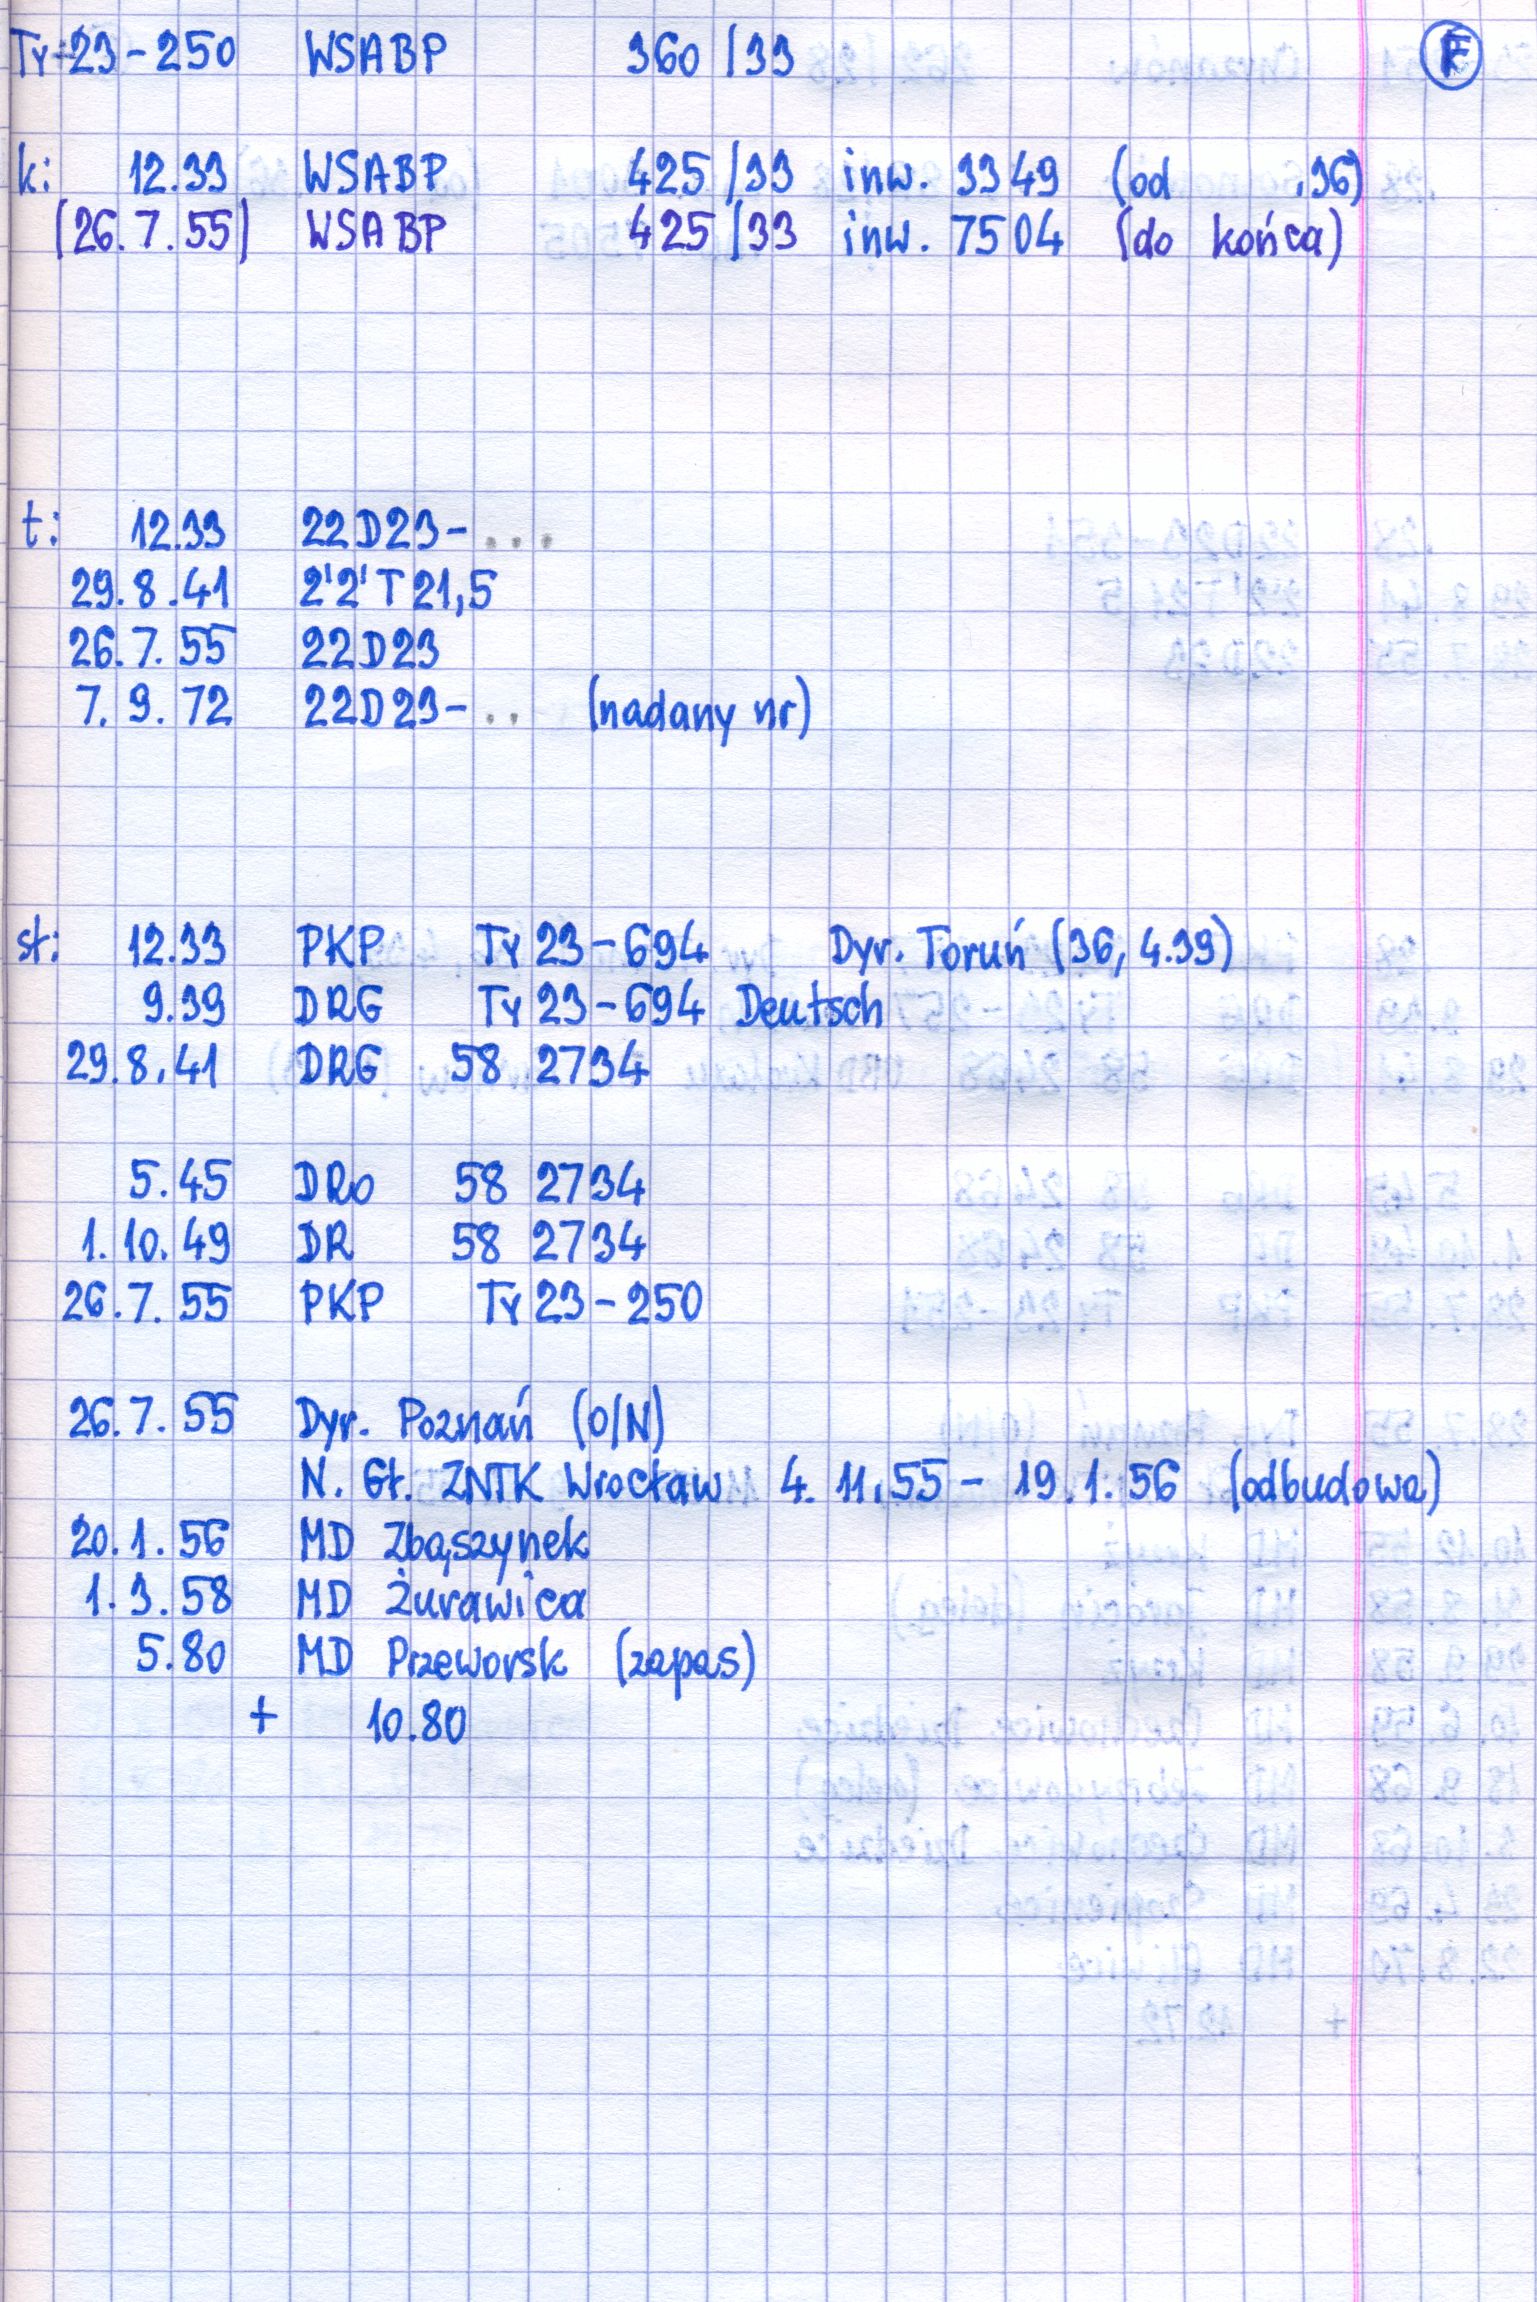 Ty 23-250 WSABP 360/33 F
k: 12.33 WSABP 425/33 inw. 3349 (od .36)
(26.7.55) WSABP 425/33 inw. 7504 (do końca)
t: 12.33 22D23-...
29.8.41 2'2'T21,5
26.7.55 22D23
7.9.72 22D23-.. (nadany nr)
st: 12.33 PKP Ty 23-694 Dyr. Toruń (36, 4.39)
9.39 DRG Ty 23-694 Deutsch
29.8.41 DRG 58 2734
5.45 DRo 58 2734
1.10.49 DR 58 2734
26.7.55 PKP Ty 23-250
26.7.55 Dyr. Poznań (O/N)
N. Gł. ZNTK Wrocław 4.11.55 - 19.1.56 (odbudowa)
20.1.56 MD Zbąszynek
1.3.58 MD Żurawica
5.80 MD Przeworsk (zapas)
+ 10.80